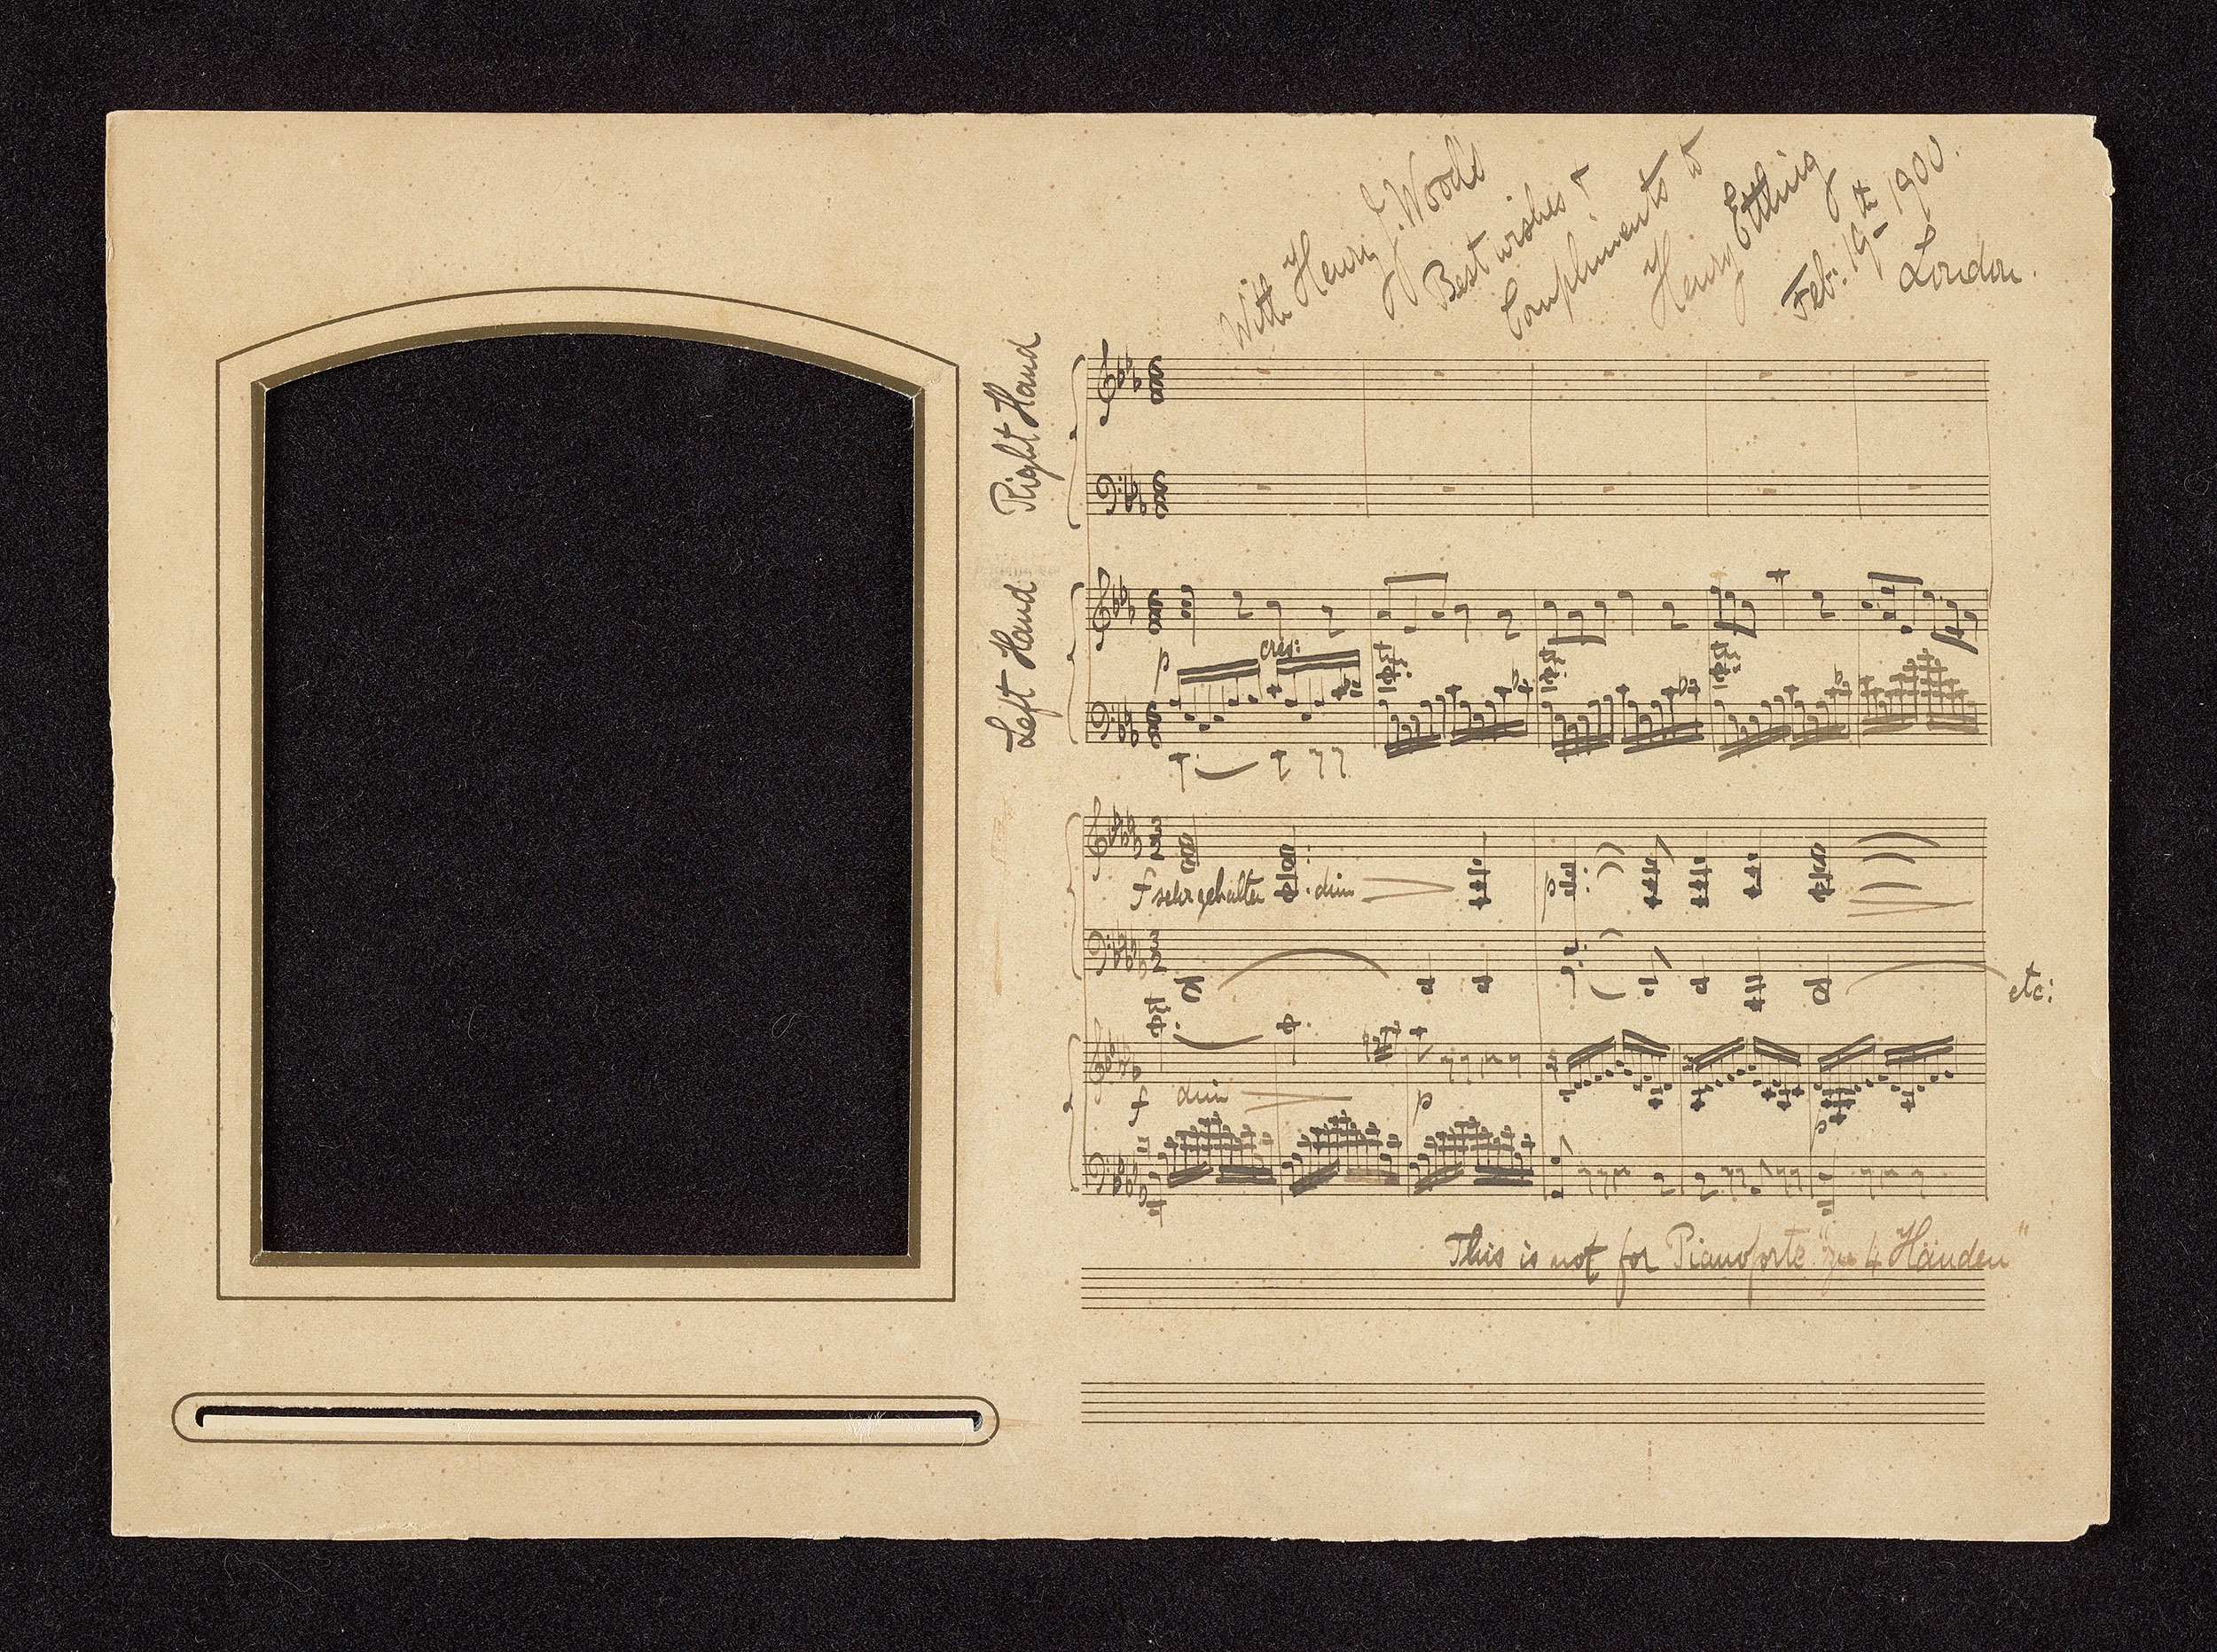 With Henry J. Woods
Best wishes &
Compliments to
Henry Ettling
Feb: 19th 1900.
London.
Right Hand
Left Hand
cres:
p
f sehr gehalten dim
p
etc:
f dim p
p
This is not for Pianoforte "zu 4 Händen"